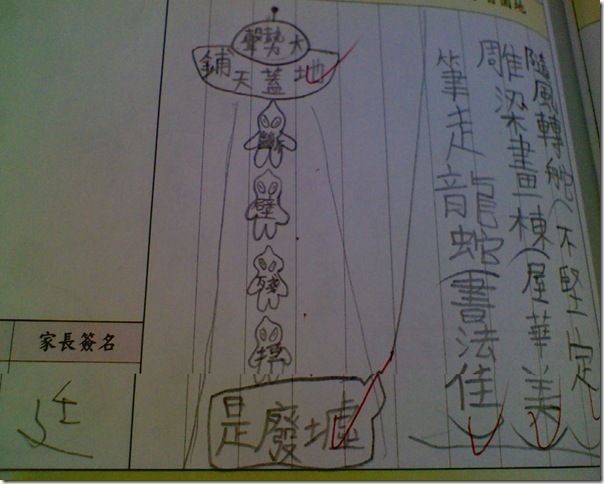 隨風轉舵(不堅定
雕梁畫棟(屋華美
筆走龍蛇(書法佳
聲勢大
鋪天蓋地
斷壁殘
是廢墟
家長簽名